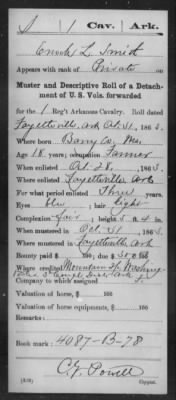 1 Cav. Ark.
Smith
Appears with rank of Private
Muster and Descriptive Roll of a Detach-
ment of U. S. Vols. forwarded
for the 1 Reg't Arkansas Cavalry. Roll dated
Fayetteville, Ark Oct. 31, 1863.
Where born Barry Co, Mo.
Age 18 years; occupation Farmer
When enlisted Oct. 28, 1863.
Where enlisted Fayetteville Ark
For what period enlisted Three years.
Eyes blue; hair light
Complexion fair; height 5 ft. 4 in.
When mustered in Oct. 31, 1863.
Where mustered in Fayetteville Ark
Bounty paid $ 100; due $ 100
Where credited
Company to which assigned
Valuation of horse, $ 100
Valuation of horse equipments, $ 100
Remarks:
Book mark: 4087-B-78
C. Powell
Copyist.